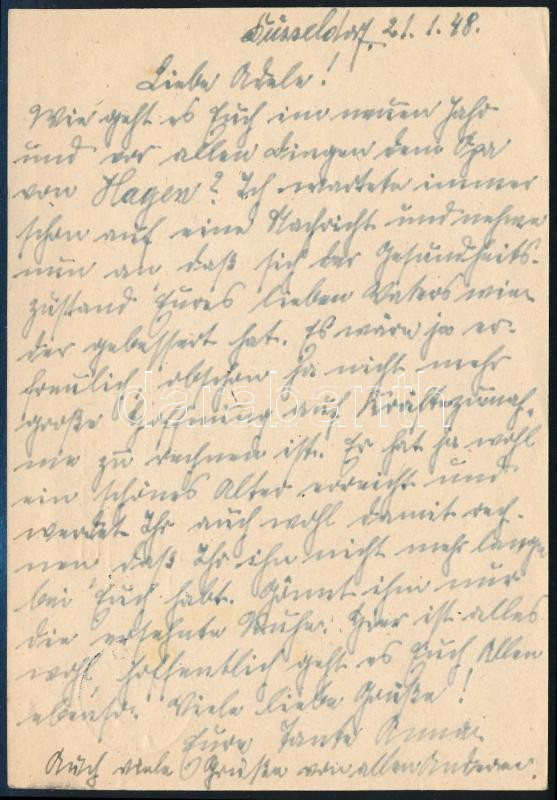 Düsseldorf, 21.1.48.
Liebe Adele!
Wie geht es Euch im neuen Jahr
und vor allen Dingen dem Opa
von Hagen? Ich wartete immer
schon auf eine Nachricht und nehme
nun an, daß sich der Gesundheits-
zustand Eures lieben Vaters wie-
der gebessert hat. Es wäre ja er-
freulich, obschon ja nicht mehr
große Hoffnung auf Kräftezunah-
me zu rechnen ist. Er hat ja wohl
ein schönes Alter erreicht und
werdet Ihr auch wohl damit rech-
nen daß Ihr ihn nicht mehr lange
bei Euch habt. Gönnt ihm nur
die ersehnte Ruhe. Hier ist alles
wohl, hoffentlich geht es Euch Allen
ebenso. Viele liebe Grüße!
Eure Tante Anna
Auch viele Grüße von allen Anderen.
darabanth